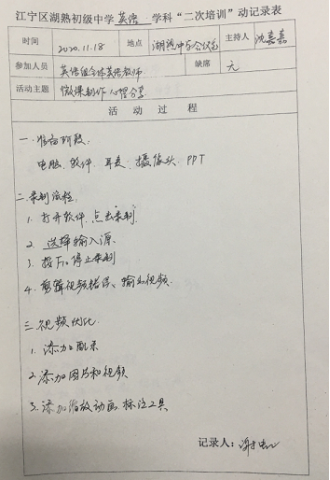 江宁区湖熟初级中学 英语 学科“二次培训”动记录表
时间 2020.11.18 地点 湖熟中学会议室 主持人 沈嘉嘉
参加人员 英语组全体英语教师 缺席 无
活动主题 微课制作心得分享
活动过程
一、准备阶段:
电脑、软件、耳麦、摄像头、PPT
二、录制流程
1. 打开软件,点击录制
2. 选择输入源
3. 按F10停止录制
4. 剪辑视频错误、输出视频
三、视频优化
1. 添加配录
2. 添加图片和视频
3. 添加播放动画、标注工具
记录人:谢